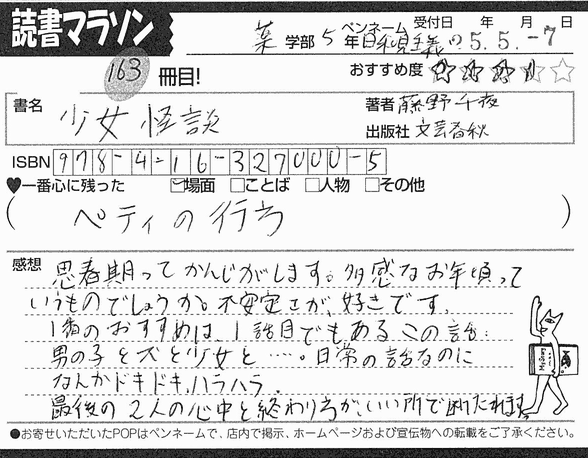 読書マラソン
薬 学部 5 年 ペンネーム 日和見主義の 受付日 5.年 5.月 -7日
163 冊目! おすすめ度
書名 少女怪談
著者 藤野千夜
出版社 文芸春秋
ISBN 978-4-16-327000-5
♥一番心に残った ☑場面 □ことば □人物 □その他
(ペティの行方)
感想 思春期ってかんじがします。多感なお年頃って
いうものでしょうか。不安定さが、好きです。
1番のおすすめは、1話目でもあるこの話:
男の子と犬と少女と…。日常の話なのに
なんかドキドキ、ハラハラ。
最後の2人の心中と終わり方が、いい所で断たれます。
●お寄せいただいたPOPはペンネームで、店内で掲示、ホームページおよび宣伝物への転載をご了承ください。